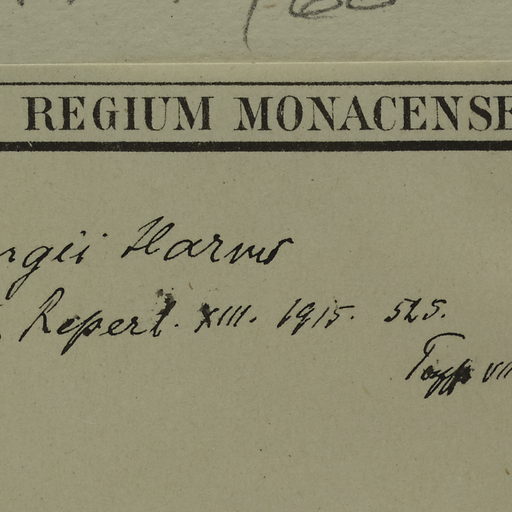 REGIUM MONACENSE
ngii Harms
Repert. XIII. 1915. 525.